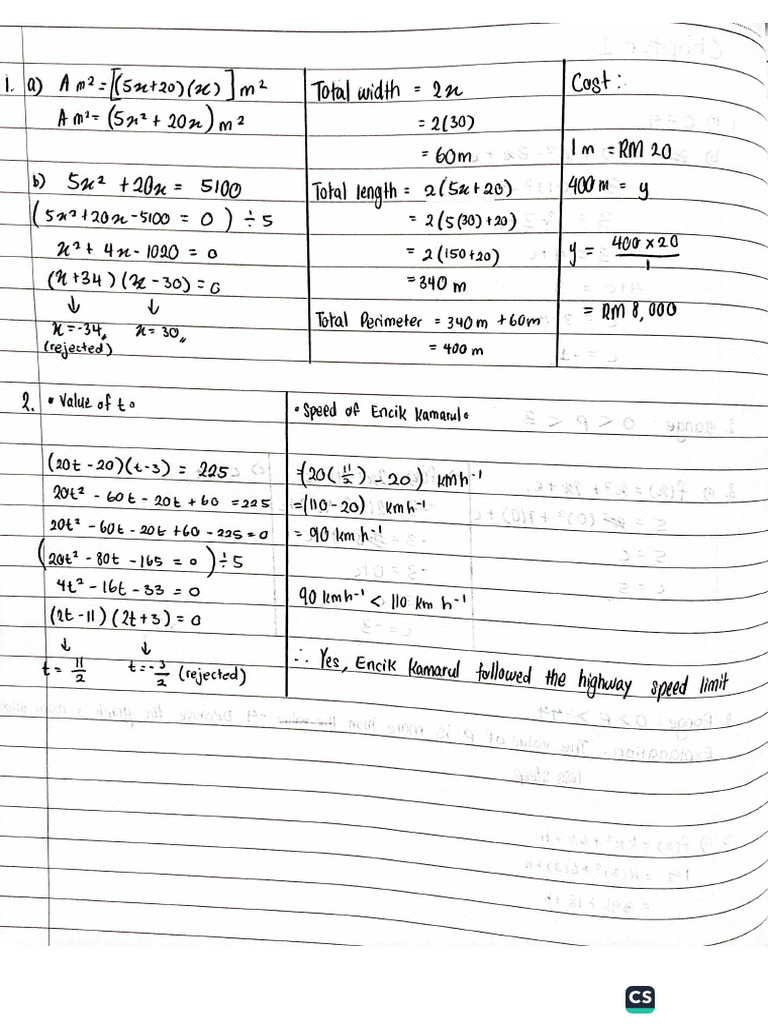 1. a) A m² = [(5x+20)(x)] m²
A m² = (5x² + 20x) m²
b) 5x² + 20x = 5100
(5x² + 20x - 5100 = 0) ÷ 5
x² + 4x - 1020 = 0
(x + 34) (x - 30) = 0
↓ ↓
x = -34, x = 30,,
(rejected)
Total width = 2x
= 2(30)
= 60m
Total length = 2(5x + 20)
= 2(5(30) + 20)
= 2(150 + 20)
= 340 m
Total Perimeter = 340 m + 60m
= 400 m
Cost :
1 m = RM 20
400 m = y
y = 400 x 20 / 1
= RM 8,000
2. • Value of t.
(20t - 20)(t - 3) = 225
20t² - 60t - 20t + 60 = 225
20t² - 60t - 20t + 60 - 225 = 0
(20t² - 80t - 165 = 0) ÷ 5
4t² - 16t - 33 = 0
(2t - 11) (2t + 3) = 0
↓ ↓
t = 11/2 t = -3/2 (rejected)
• Speed of Encik Kamarul.
= (20(11/2) - 20) km h⁻¹
= (110 - 20) km h⁻¹
= 90 km h⁻¹
90 km h⁻¹ < 110 km h⁻¹
∴ Yes, Encik Kamarul followed the highway speed limit
CS